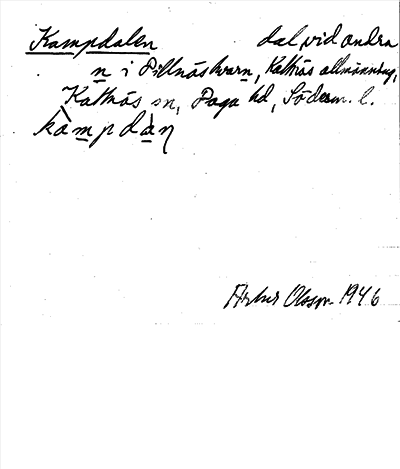 Kampdalen dal vid andra
n i Pillnäskvarn, Kattnäs allmänning,
Kattnäs sn, Daga hd, Söderm. l.
kàmpdàn̥
Artur Olsson 1946